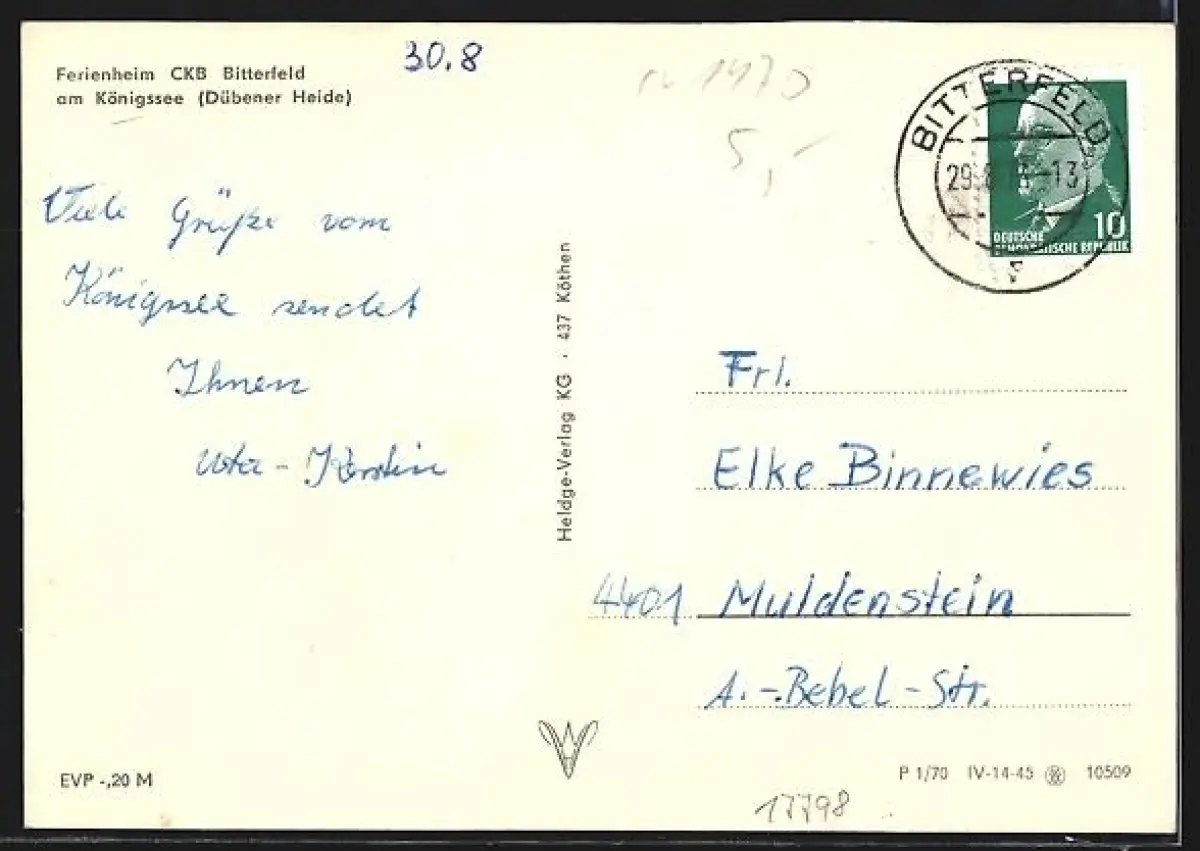 Ferienheim CKB Bitterfeld
am Königssee (Dübener Heide)
30.8
5,-
BITTERFELD
29.8
-13
10
DEUTSCHE
DEMOKRATISCHE REPUBLIK
Viele Grüße vom
Königssee sendet
Ihnen
Heldge-Verlag KG · 437 Köthen
Frl.
Elke Binnewies
4401 Muldenstein
A.-Bebel-Str.
EVP -,20 M
P 1/70 IV-14-45 10509
17798